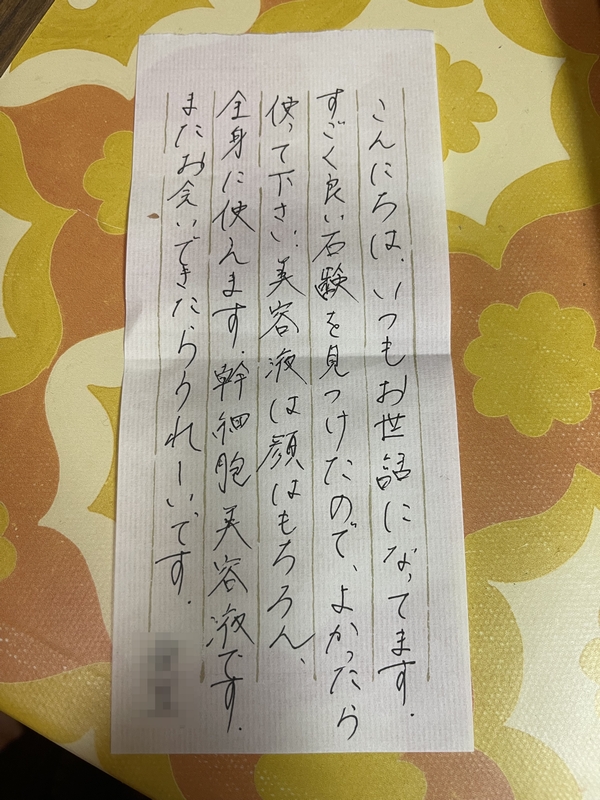 こんにちは、いつもお世話になってます.
すごく良い石験を見つけたので、よかったら
使って下さい.美容液は顔はもちろん、
全身に使えます.幹細胞美容液です.
またお会いできたらうれしいです.